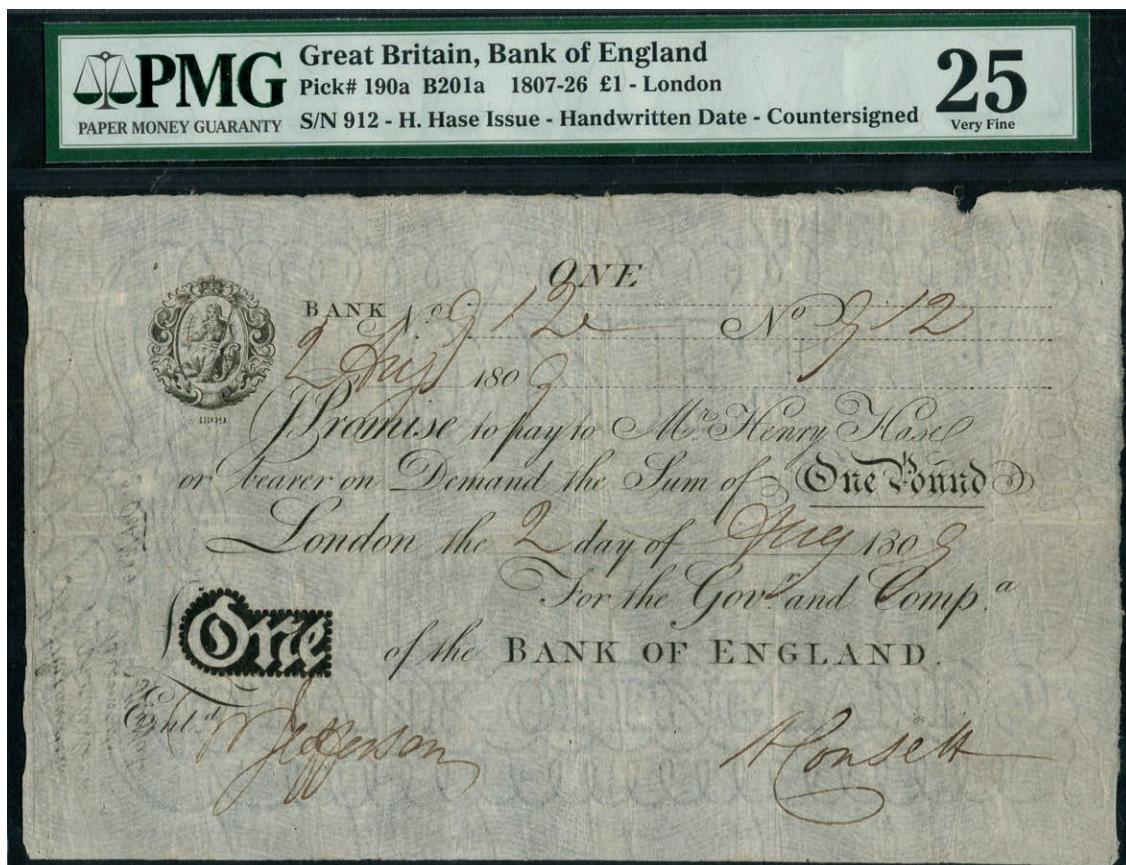 PMG
PAPER MONEY GUARANTY
Great Britain, Bank of England
Pick# 190a B201a 1807-26 £1 - London
S/N 912 - H. Hase Issue - Handwritten Date - Countersigned
25
Very Fine
ONE
BANK No 912 No 912
2 Augt 1809
1809
I Promise to pay to Mr. Henry Hase
or bearer on Demand the Sum of One Pound
London the 2 day of Aug 1809
For the Govr. and Comp.a
One
of the BANK OF ENGLAND.
Entd. Jefferson
A Consett